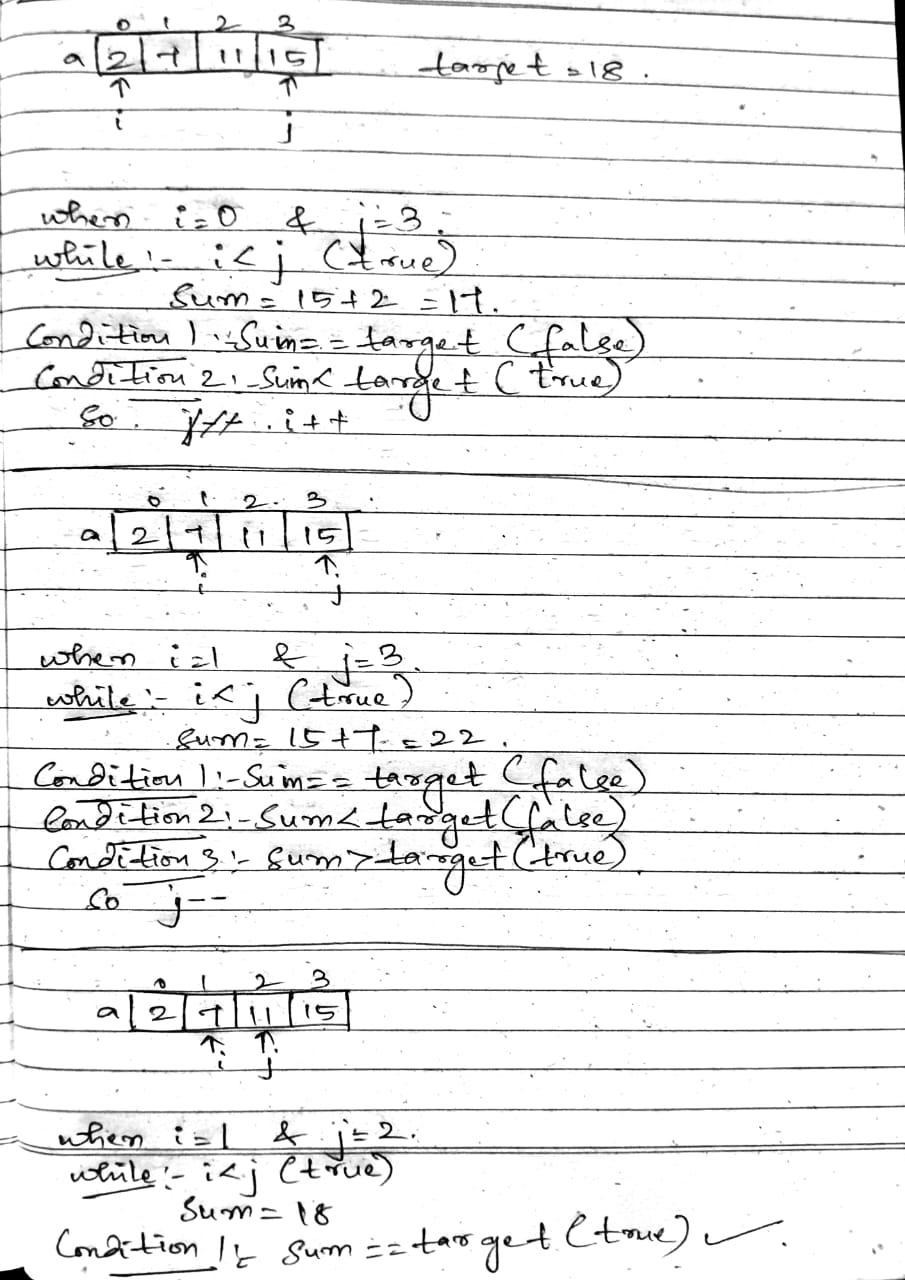 0 1 2 3
a 2 7 11 15 target = 18.
i j
when i=0 & j=3.
while :- i<j (true)
Sum = 15+2 = 17.
Condition 1 :- Sum == target (false)
Condition 2 :- Sum < target (true)
So. j++. i++
0 1 2. 3
a 2 7 11 15
i j
when i=1 & j=3.
while :- i<j (true)
Sum = 15+7 = 22.
Condition 1 :- Sum == target (false)
Condition 2 :- Sum < target (false)
Condition 3 :- Sum > target (true)
So j--
0 1 2 3
a 2 7 11 15
i j
when i=1 & j=2.
while :- i<j (true)
Sum = 18
Condition 1 :- Sum == target (true) ✓.